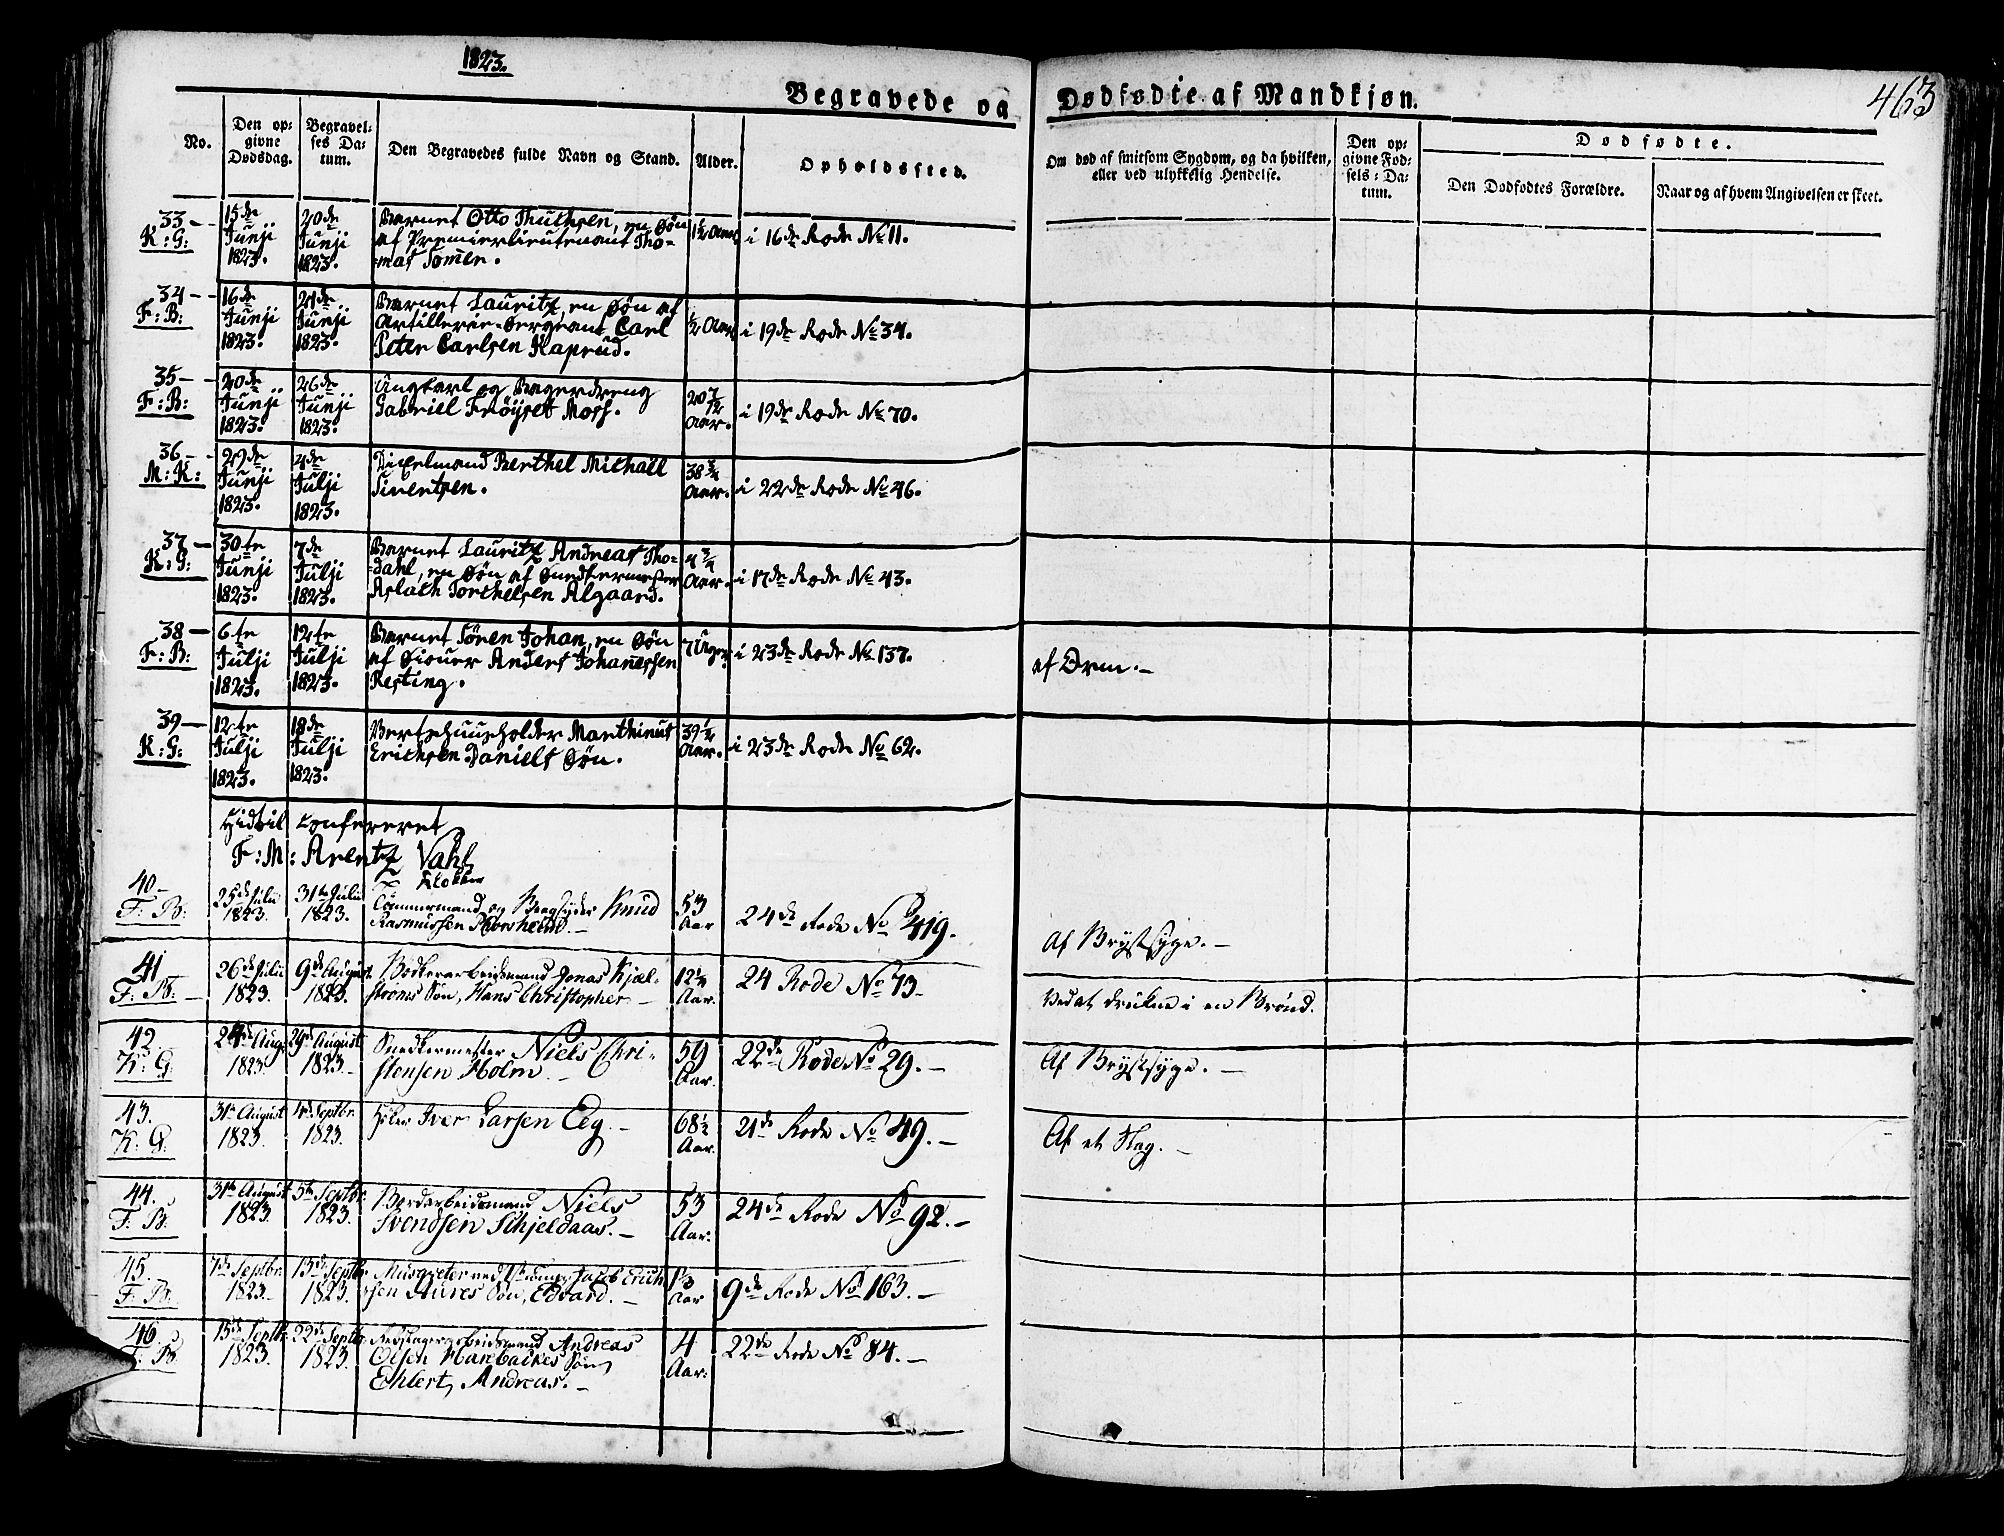 1823.
463
Begravede og Dødfødte af Mandkjøn.
No.
Den opgivne Dødsdag.
Begravelses Datum.
Den Begravedes fulde Navn og Stand.
Alder.
Opholdssted.
Om død af smitsom Sygdom, og da hvilken, eller ved ulykkelig Hendelse.
Den opgivne Fødsels-Datum.
Dødfødte.
Den Dødfødtes Forældre.
Naar og af hvem Angivelsen er skeet.
33 K: G: 15de Junji 1823. 20de Junji 1823. Barnet Otto Thuchsen, en Søn
af Premierlieutenant Tho-
mas Sømer. 1½ Aar i 16de Rode No 11.
34 F: B: 16de Junji 1823. 21de Junji 1823. Barnet Lauritz, en Søn af
Artillerie-Sergeant Carl
Peter Carlsen Kaprud. ½ Aar i 19de Rode No 34.
35 F: B: 20de Junji 1823. 26de Junji 1823. Ungkarl og Bagerdreng
Gabriel Frøyset Moss. 20 7/12 Aar. i 19de Rode No 70.
36 M: K: 29de Junji 1823. 4de Julji 1823. Berthel Michael
Sivertsen. 38 ¾ Aar. i 22de Rode No 46.
37 K: G: 30te Junji 1823. 7de Julji 1823. Barnet Lauritz Andreas Tho-
dahl, en Søn af Snedkermester
Aslach Torchelsen Algaard. 4 ¾ Aar. i 17de Rode No 43.
38 F: B: 6te Julji 1823. 12te Julji 1823. Barnet Sören Johan, en Søn
af Skouer Anders Johanessen
Resting. 7 Uger i 23de Rode No 137. af Orm.
39 K: G: 12te Julji 1823. 18de Julji 1823. Vertshuusholder Marthinus
Erichsen Daniels Søn. 39 ½ Aar. i 23de Rode No 62.
Hidtil Confereret
F: M: Arentz Vahl
Klokker
40 F: B: 25de Julii 1823. 31te Julii 1823. Tømmermand og Knud
Rasmussen 53 Aar 24de Rode No 419. Af Brystsyge.
41 F: B: 26de Julii 1823 9de August 1823. Bødkerarbeidsmand Jonas Kjæl-
strøms Søn, Hans Christopher. 12½ Aar. 24 Rode No 73. Ved at drukne i en Brønd.
42. K: G: 24de Aug. 1823. 29de August 1823. Snedkermester Niels Chri-
stensen Holm. 59 Aar. 22de Rode No 29. Af Brystsyge.
43. K: G: 31te August 1823. 4de Septbr. 1823. Iver Larsen Eeg. 68½ Aar. 21de Rode No 49. Af et Slag.
44. F: B: 31te August 1823. 5te Septbr. 1823. Niels
Svendsen Schjeldaas. 53 Aar. 24de Rode No 92.
45. F: B: 7de Septbr. 1823. 13de Septbr. 1823. Musqveter ved Jacob Erich
sen Aures Søn, Edvard. 1⅓ Aar 9de Rode No 163.
46 F: B. 15de Septbr. 1823. 22de Septbr. 1823. Andreas
Olsen Harebackes Søn
Ehlert Andreas. 4 Aar. 22de Rode No 84.